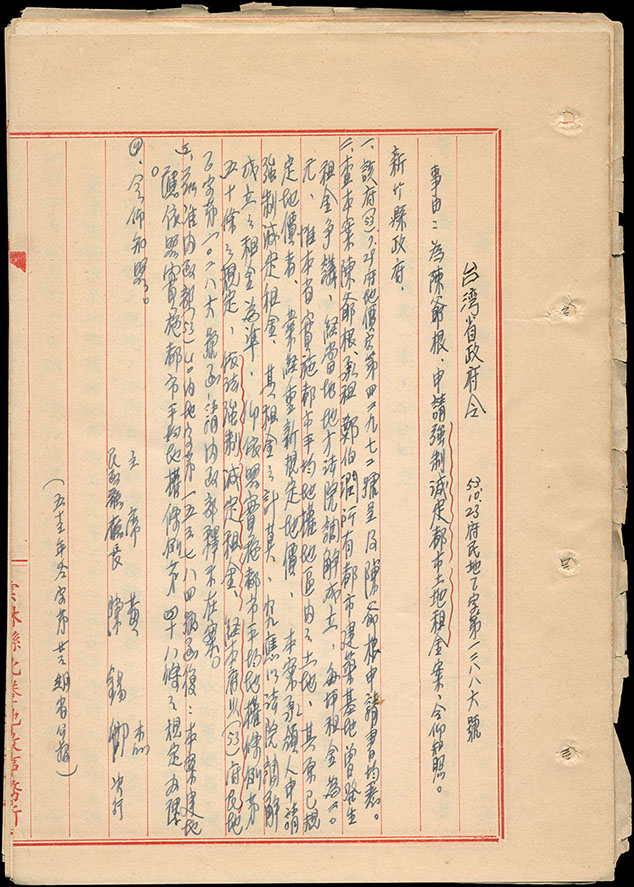 台湾省政府令
53.10.23府民地乙字第一三八八六號
事由：為陳爺根．申請強制減定都市土地租金案，令仰知照。
新竹縣政府．
一、該府(53)7.29府地價字第四二九七二號呈及陳爺根申請書均悉。
二、查本案陳爺根承租鄭伯潤所有都市建築基地曾發生
租金爭議，經當地地方法院調解成立，每坪租金為
元，惟本省實施都市平均地權地區內之土地，其原已規
定地價者，業經重新規定地價，本案承領人申請
強制減定租金，其租金之計算，究應以法院調解
成立之租金為準，抑依照實施都市平均地權條例第
五十條之規定，依法強制減定租金，經本府以(53)府民地
乙字第一〇二八六號函請內政部釋示在案。
三、茲准內政部(53)內地字第一五五七八四號函復：本案建地
應依照實施都市平均地權條例第四十八條之規定辦理
。
四、令仰知照。
主席 黃杰
民政廳廳長 陳錫卿 決行
(五十三年冬字第廿三期省公報)
縣北港地政事務所